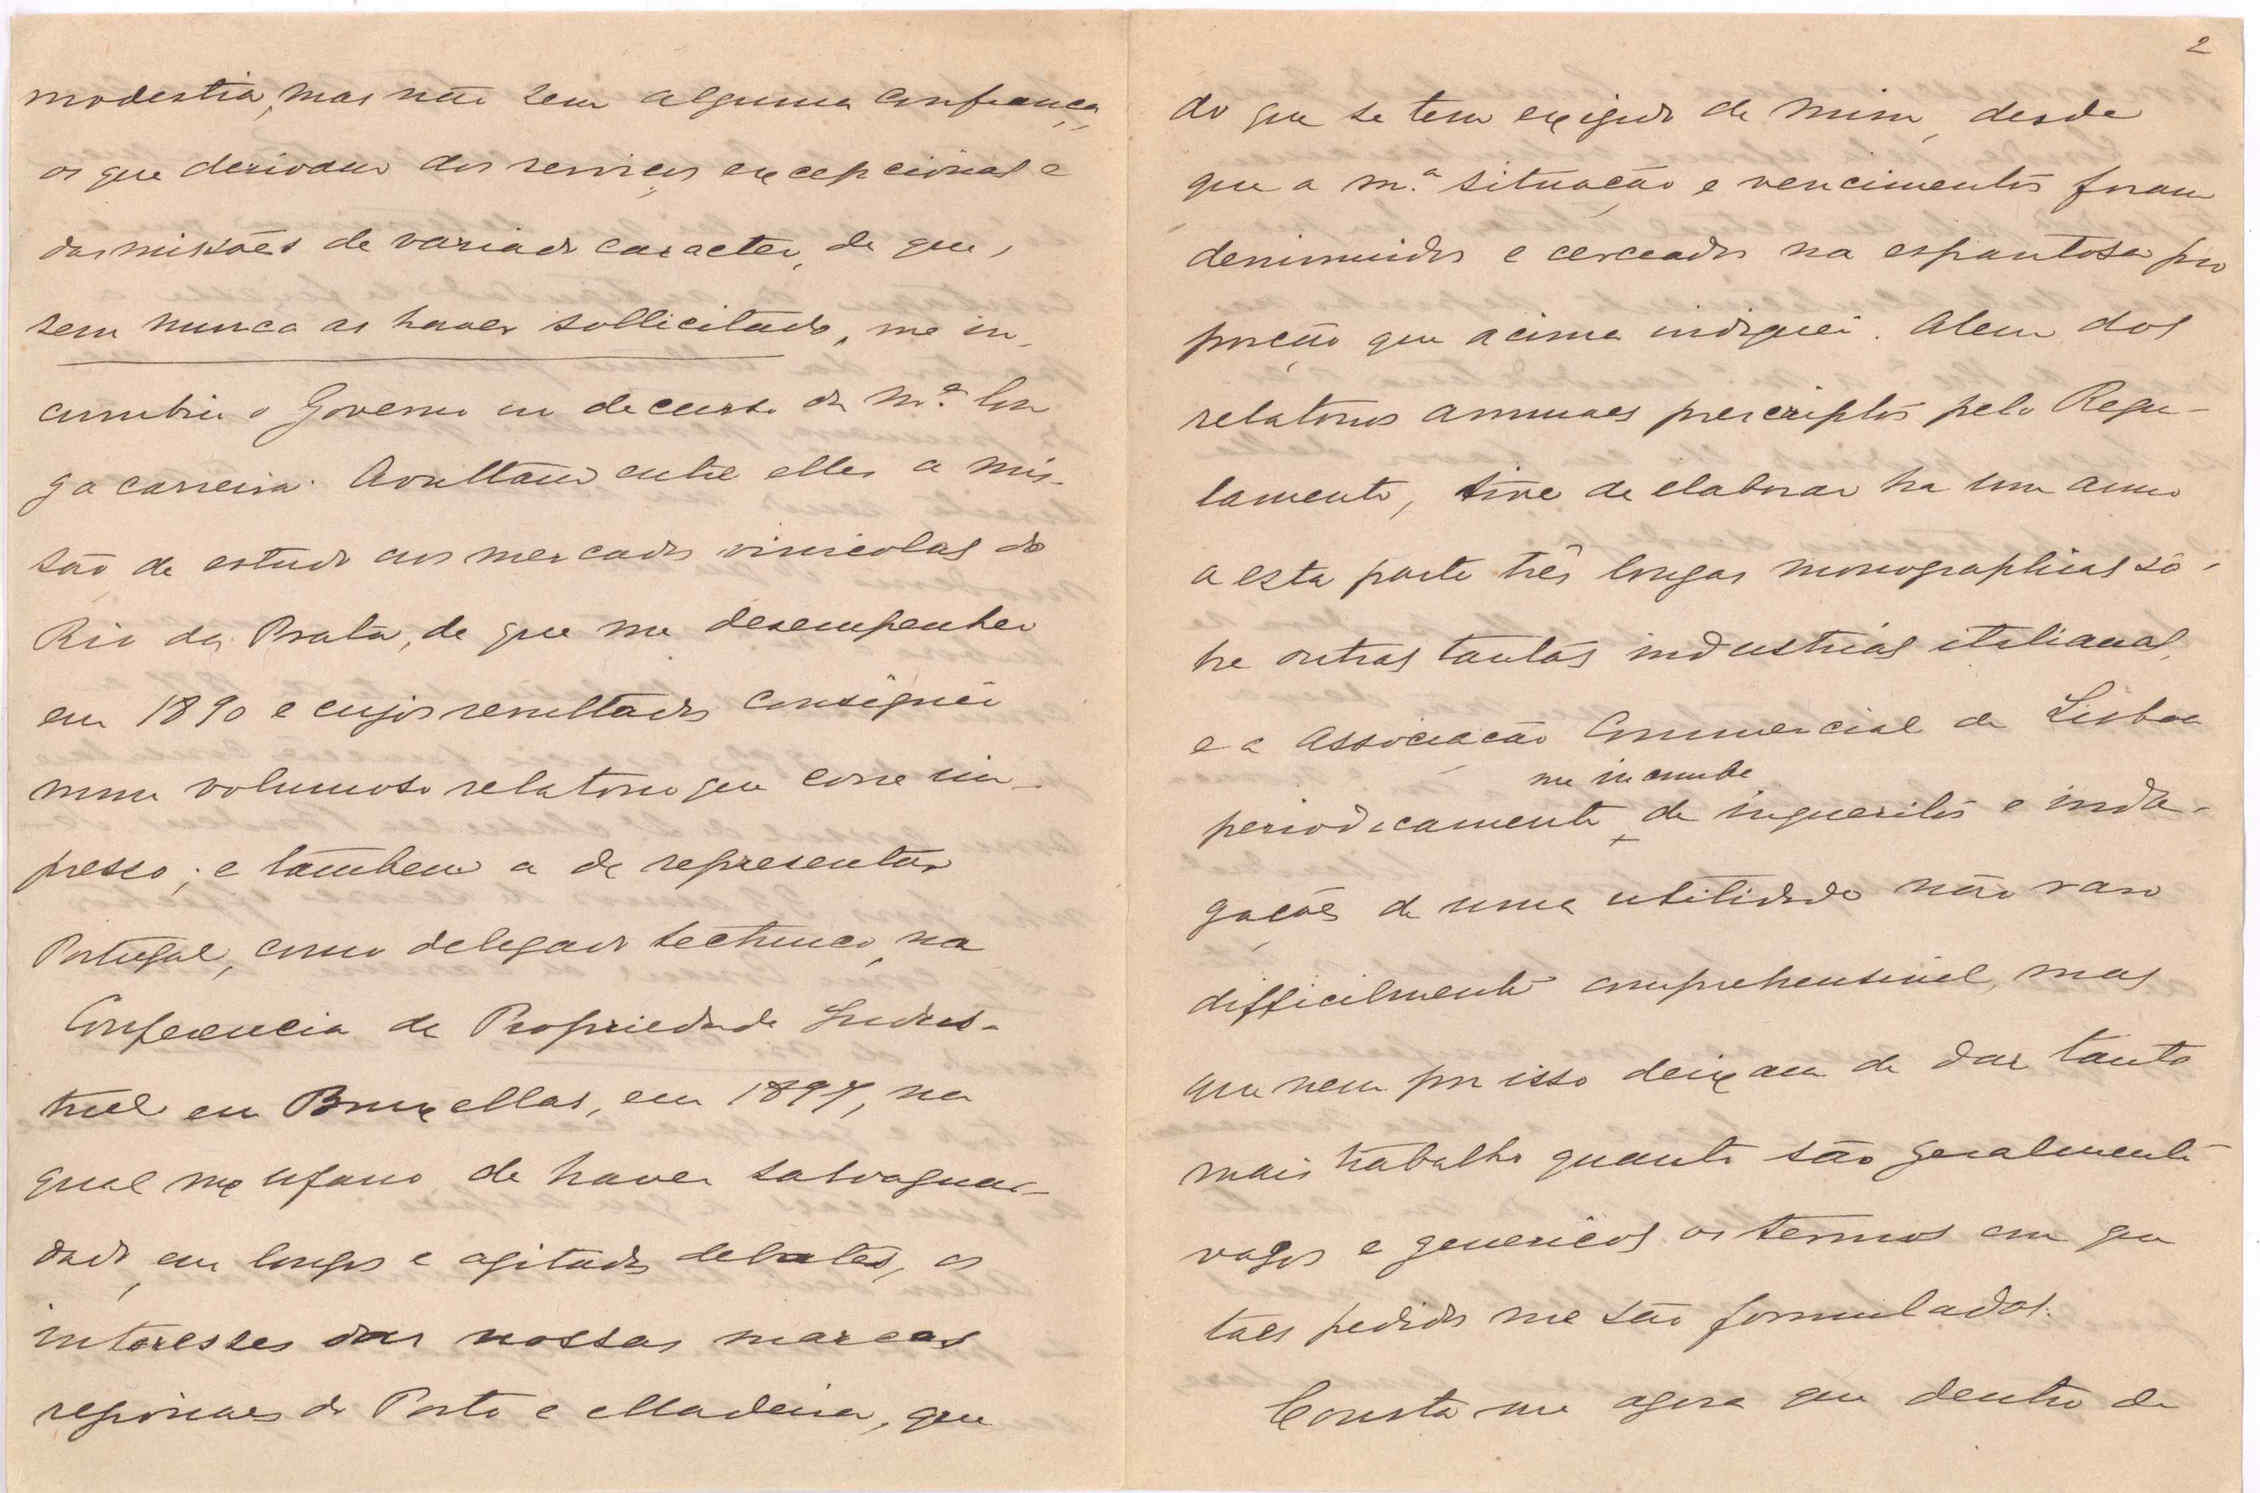 modestia, mas não sem alguma confiança,
os que derivam dos serviços excepcionaes e
das missões de variado caracter, de que,
sem nunca as haver sollicitado, me in-
cumbiu o Governo no decurso da m.ª lon
ga carreira. Avultam entre elles a mis-
são de estudo aos mercados vinicolas do
Rio da Prata, de que me desempenhei
em 1890 e cujos resultados consignei
num volumoso relatorio que corre im-
presso; e tambem a de representar
Portugal, como delegado technico, na
Conferencia de Propriedade Indus-
trial em Bruxellas, em 1897, na
qual me ufano de haver salvaguar-
dado, em longos e agitados debates, os
interesses das nossas marcas
regionaes do Porto e Madeira, que
2
do que se tem exigido de mim, desde
que a m.ª situação e vencimentos foram
deminuidos e cerceados na espantosa pro
porção que acima indiquei. Alem dos
relatorios annuaes prescriptos pelo Regu-
lamento, tive de elaborar ha um anno
a esta parte três longas monographias so-
bre outras tantas industrias italianas,
e a Associação Commercial de Lisboa
me incumbe
periodicamente de inqueritos e inda-
gações de uma utilidade não raro
difficilmente comprehensivel, mas
que nem por isso deixam de dar tanto
mais trabalho quanto são geralmente
vagos e genericos os termos em que
taes pedidos me são formulados.
Consta-me agora que dentro de